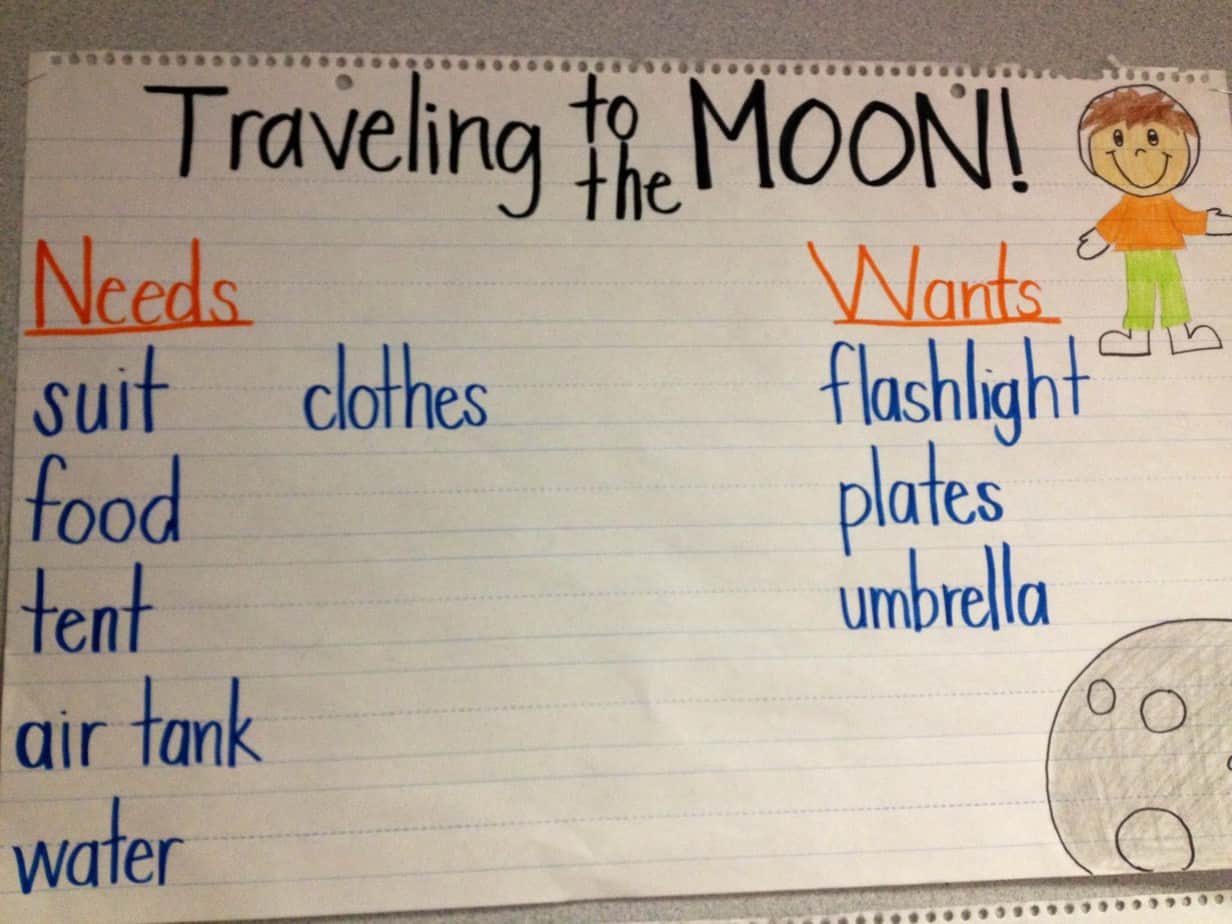 Traveling to the MOON!
Needs
suit clothes
food
tent
air tank
water
Wants
flashlight
plates
umbrella